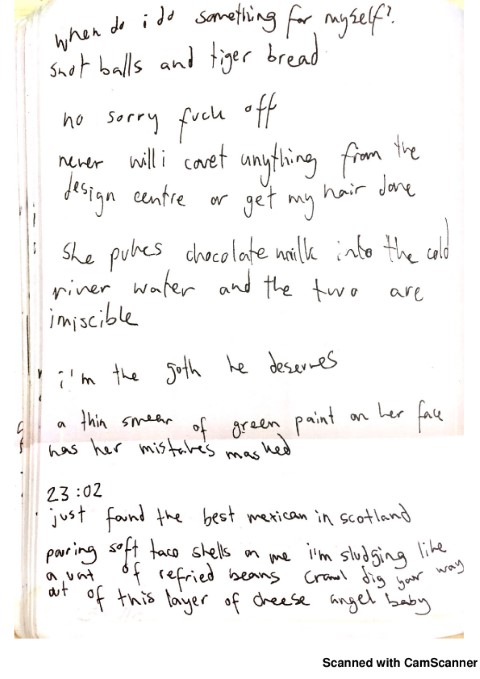 when do i do something for myself?
snot balls and tiger bread
no sorry fuck off
never will i covet anything from the
design centre or get my hair done
She pukes chocolate milk into the cold
river water and the two are
imiscible
i'm the goth he deserves
a thin smear of green paint on her face
has her mistakes mashed
23:02
just found the best mexican in scotland
pouring soft taco shells on me i'm sludging like
a vat of refried beans crawl dig your way
out of this layer of cheese angel baby
Scanned with CamScanner